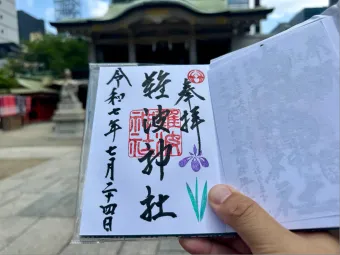 奉拝
難波神社
令和七年七月二十四日